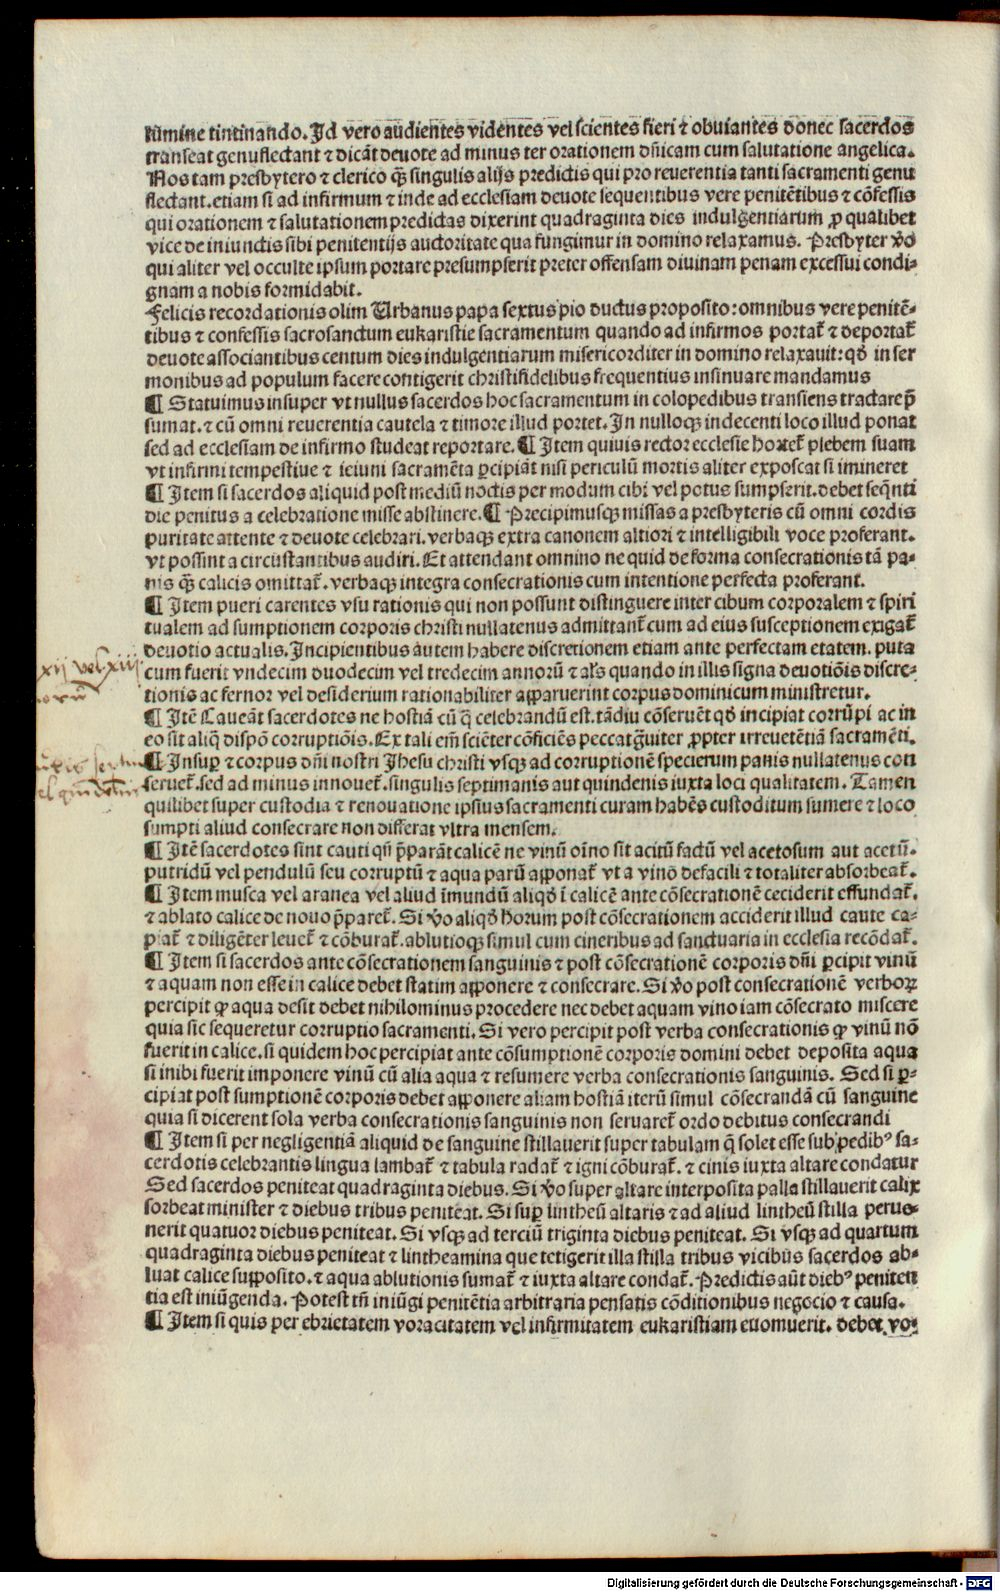 lumine tintinando. Id vero audientes videntes vel scientes fieri ⁊ obuiantes donec sacerdos
transeat genuflectant ⁊ dicāt deuote ad minus ter orationem dn̄icam cum salutatione angelica.
Nos tam presbytero ⁊ clerico q̄ꝫ singulis alijs predictis qui pro reuerentia tanti sacramenti genu
flectant. etiam si ad infirmum ⁊ inde ad ecclesiam deuote sequentibus vere penitētibus ⁊ cōfessis
qui orationem ⁊ salutationem predictas dixerint quadraginta dies indulgentiarum ꝓ qualibet
vice de iniunctis sibi penitentijs auctoritate qua fungimur in domino relaxamus. Presbyter v̄o
qui aliter vel occulte ipsum portare presumpserit preter offensam diuinam penam excessui condi-
gnam a nobis formidabit.
Felicis recordationis olim Urbanus papa sextus pio ductus proposito: omnibus vere penitē-
tibus ⁊ confessis sacrosanctum eukaristie sacramentum quando ad infirmos portat̄ ⁊ deportat̄
deuote associantibus centum dies indulgentiarum misericorditer in domino relaxauit: qd̄ in ser
monibus ad populum facere contigerit christifidelibus frequentius insinuare mandamus
¶ Statuimus insuper vt nullus sacerdos hoc sacramentum in colopedibus transiens tractare p̄
sumat. ⁊ cū omni reuerentia cautela ⁊ timore illud portet. In nulloqꝫ indecenti loco illud ponat
sed ad ecclesiam de infirmo studeat reportare. ¶ Item quiuis rector ecclesie hortet̄ plebem suam
vt infirmi tempestiue ⁊ ieiuni sacramēta ꝑcipiāt nisi periculū mortis aliter exposcat si imineret
¶ Item si sacerdos aliquid post mediū noctis per modum cibi vel potus sumpserit. debet seq̄nti
die penitus a celebratione misse abstinere. ¶ Precipimusqꝫ missas a presbyteris cū omni cordis
puritate attente ⁊ deuote celebrari. verbaqꝫ extra canonem altiori ⁊ intelligibili voce proferant.
vt possint a circūstantibus audiri. Et attendant omnino ne quid de forma consecrationis tā pa-
nis q̄ꝫ calicis omittat̄. verbaqꝫ integra consecrationis cum intentione perfecta proferant.
¶ Item pueri carentes vsu rationis qui non possunt distinguere inter cibum corporalem ⁊ spiri
tualem ad sumptionem corporis christi nullatenus admittant̄ cum ad eius susceptionem exigat̄
deuotio actualis. Incipientibus autem habere discretionem etiam ante perfectam etatem. puta
cum fuerit vndecim duodecim vel tredecim annorū ⁊ al̄s quando in illis signa deuotiōis discre-
tionis ac feruor vel desiderium rationabiliter apparuerint corpus dominicum ministretur.
¶ Itē Caueāt sacerdotes ne hostiā cū q̄ celebrandū est. tādiu cōseruēt qd̄ incipiat corrūpi ac in
eo sit aliq̄ dispō corruptiōis. Ex tali em̄ sciēter cōficiēs peccat ḡuiter ꝓpter irreuerētiā sacramēti.
¶ Insuꝑ ⁊ corpus dn̄i nostri Jhesu christi vsqꝫ ad corruptionē specierum panis nullatenus con
seruet̄. sed ad minus innouet̄. singulis septimanis aut quindenis iuxta loci qualitatem. Tamen
quilibet super custodia ⁊ renouatione ipsius sacramenti curam habēs custoditum sumere ⁊ loco
sumpti aliud consecrare non differat vltra mensem.
¶ Itē sacerdotes sint cauti qn̄ p̄parāt calicē ne vinū oīno sit acitū factū vel acetosum aut acetū.
putridū vel pendulū seu corruptū ⁊ aqua parū apponat̄ vt a vino defacili ⁊ totaliter absorbeat̄.
¶ Item musca vel aranea vel aliud īmundū aliqd̄ ī calicē ante cōsecrationē ceciderit effundat̄.
⁊ ablato calice de nouo p̄paret̄. Si v̄o aliqd̄ horum post cōsecrationem acciderit illud caute ca-
piat̄ ⁊ diligēter leuet̄ ⁊ cōburat̄. ablutioqꝫ simul cum cineribus ad sanctuaria in ecclesia recōdat̄.
¶ Item si sacerdos ante cōsecrationem sanguinis ⁊ post cōsecrationē corporis dn̄i ꝑcipit vinū
⁊ aquam non esse in calice debet statim apponere ⁊ consecrare. Si v̄o post consecrationē verboꝝ
percipit ꝙ aqua desit debet nihilominus procedere nec debet aquam vino iam cōsecrato miscere
quia sic sequeretur corruptio sacramenti. Si vero percipit post verba consecrationis ꝙ vinū nō
fuerit in calice. si quidem hoc percipiat ante cōsumptionē corporis domini debet deposita aqua
si inibi fuerit imponere vinū cū alia aqua ⁊ resumere verba consecrationis sanguinis. Sed si ꝑ-
cipiat post sumptionē corporis debet apponere aliam hostiā iterū simul cōsecrandā cū sanguine
quia si dicerent sola verba consecrationis sanguinis non seruaret̄ ordo debitus consecrandi
¶ Item si per negligentiā aliquid de sanguine stillauerit super tabulam q̄ solet esse sub pedibꝰ sa-
cerdotis celebrantis lingua lambat̄ ⁊ tabula radat̄ ⁊ igni cōburat̄. ⁊ cinis iuxta altare condatur
Sed sacerdos peniteat quadraginta diebus. Si v̄o super altare interposita palla stillauerit calix
sorbeat minister ⁊ diebus tribus peniteat. Si suꝑ lintheū altaris ⁊ ad aliud lintheū stilla perue-
nerit quatuor diebus peniteat. Si vsqꝫ ad terciū triginta diebus peniteat. Si vsqꝫ ad quartum
quadraginta diebus peniteat ⁊ lintheamina que tetigerit illa stilla tribus vicibus sacerdos ab-
luat calice supposito. ⁊ aqua ablutionis sumat̄ ⁊ iuxta altare condat̄. Predictis aūt diebꝰ peniten
tia est iniūgenda. Potest tn̄ iniūgi penitētia arbitraria pensatis cōditionibus negocio ⁊ causa.
¶ Item si quis per ebrietatem voracitatem vel infirmitatem eukaristiam euomuerit. debet vo-
xij vel xiij
Digitalisierung gefördert durch die Deutsche Forschungsgemeinschaft - DFG